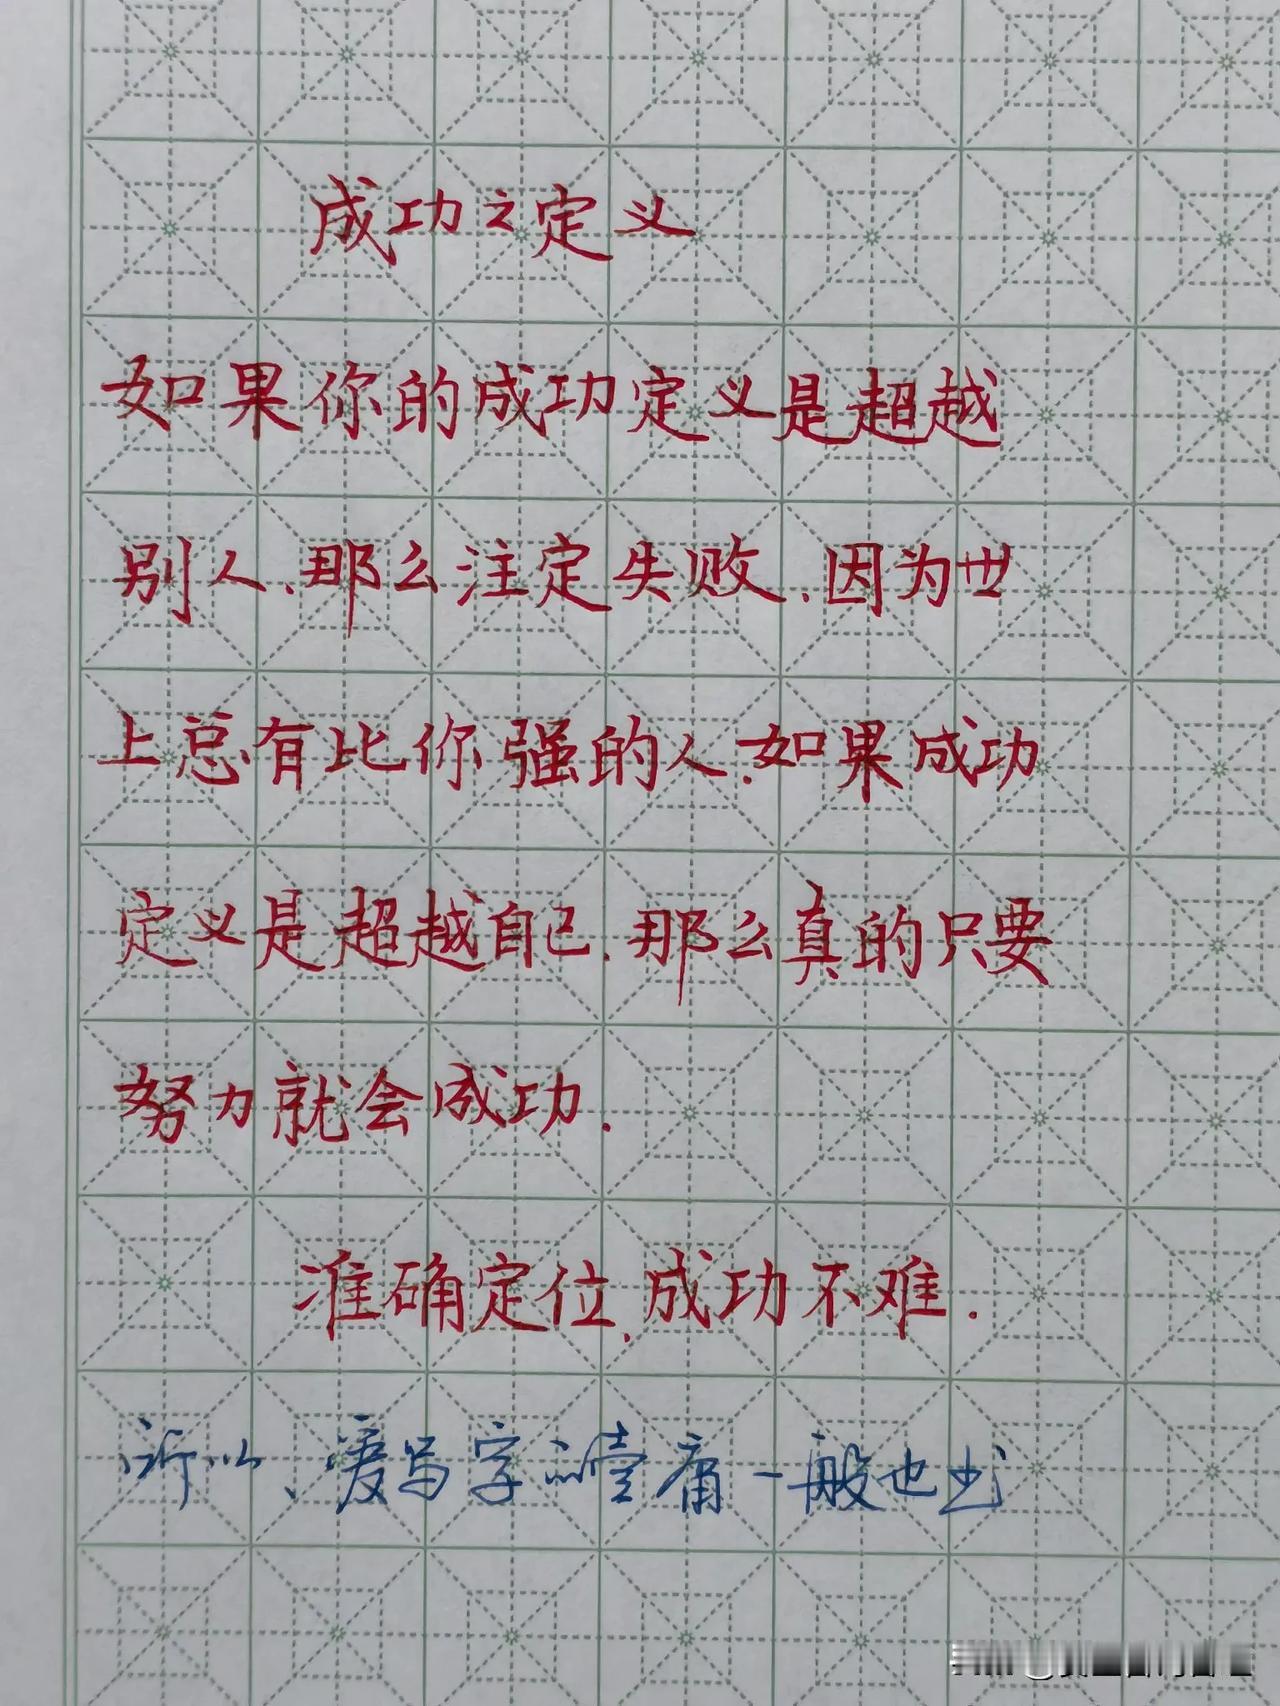 成功之定义
如果你的成功定义是超越
别人、那么注定失败、因为世
上总有比你强的人、如果成功
定义是超越自己、那么真的只要
努力就会成功.
准确定位、成功不难.
所以、爱写字的 一般也